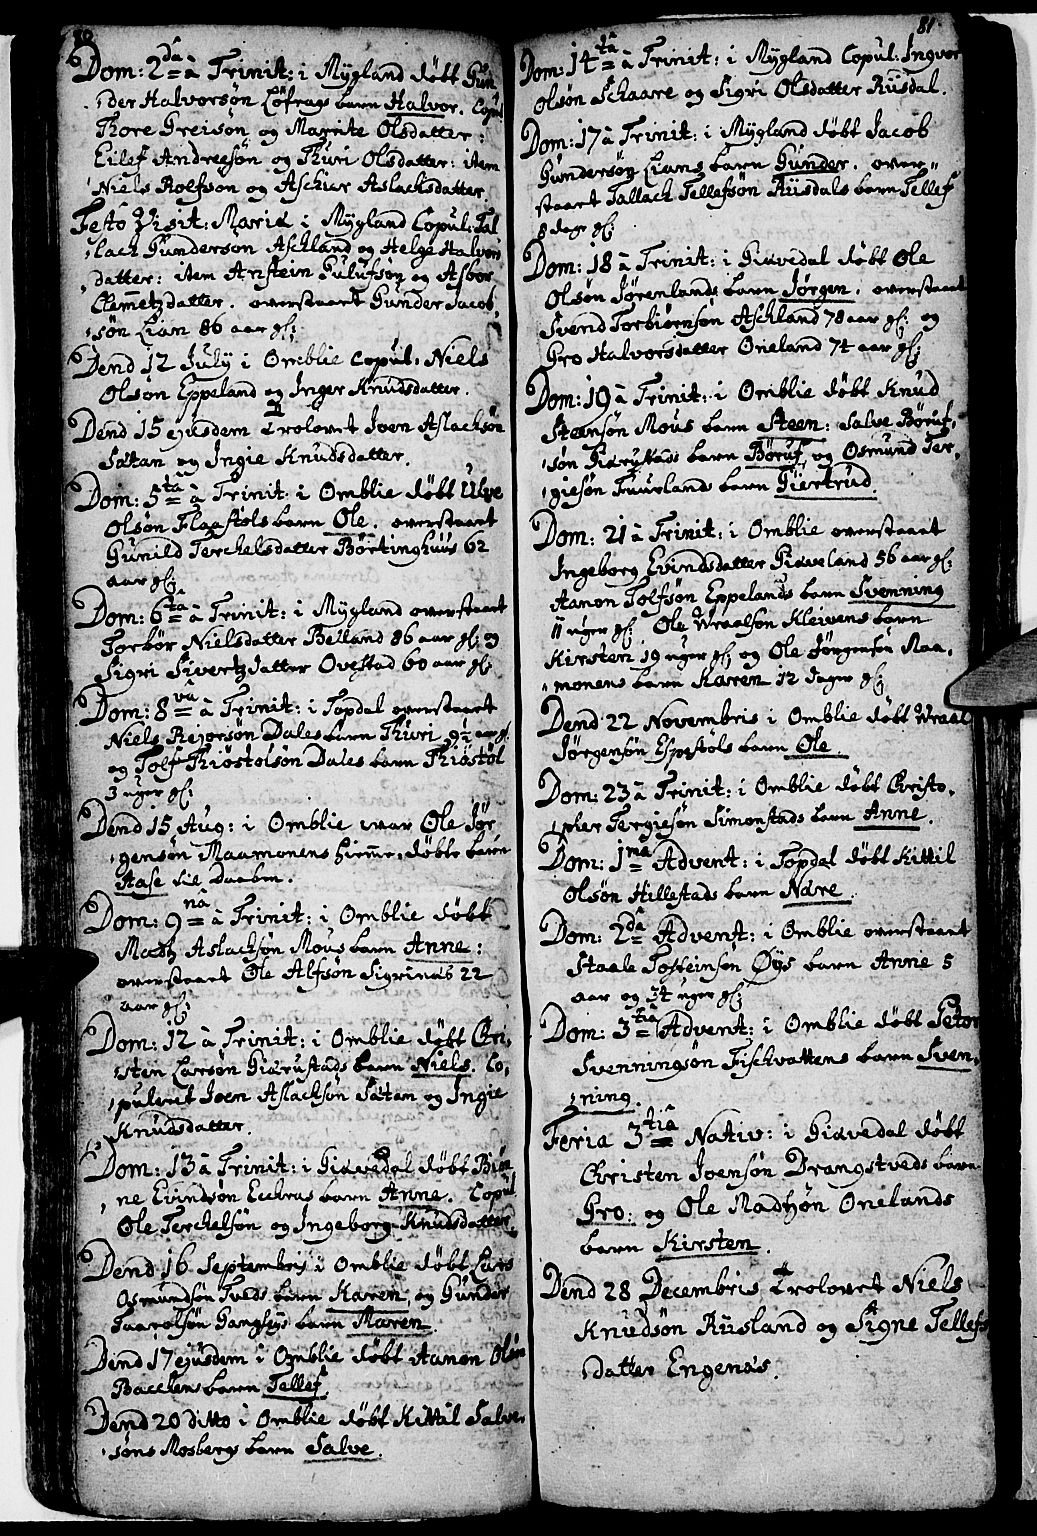 80
Dom: 2da à Trinit: i Mygland døbt Gun
der Halvorsøn Løfrags barn Halvor. Copul
Thore Greisøn og Marrite Olsdatter:
Eilef Andreesøn og Thuri Olsdatter: item
Niels Rolfson og Aschier Aslachsdatter.
Festo Visit: Mariæ i Mygland Copul: Tal
lach Gunderson Aschland og Helge Halvors
datter: item Anstein Gulufsøn og Asbor
Clemetzdatter. overstaaet Gunder Jacob,
søn Lian 86 aar gl:
Dend 12 July i Omblie Copul: Niels
Olson Eppeland og Inger Knudsdatter.
Dend 15 ejusdem Trolovet Joen Aslachsøn
Satan og Ingie Knudsdatter.
Dom: 5ta à Trinit: i Omblie døbt Ulve
Olsøn Flaastøls barn Ole. overstaaet
Gunild Terchelsdatter Børtinghuus 62
aar gl:
Dom: 6ta à Trinit: i Mygland overstaaet
Torbør Nielsdatter Belland 86 aar gl: og
Sigri Sivertzdatter Ovestad 60 aar gl:
Dom: 8va à Trinit: i Topdal overstaaet
Niels Rejersøn Dales barn Thuri 9½ aar gl.
og Tolf Thiøstolsøn Dales barn Thiøstøl
3 uger gl:
Dend 15 Aug: i Omblie war Ole Jør
gensøn Maamonens hiemme, døbte barn
Aase til Daaben.
Dom: 9na à Trinit: i Omblie døbt
Madtz Aslachsøn Mous barn Anne:
overstaaet Ole Alfsøn Sigrinæs 22
aar gl:
Dom: 12 à Trinit: i Omblie døbt Chri,
sten Larsøn Giærustads barn Niels. Co,
puleret Joen Aslachsøn Satan og Ingie
Knudsdatter.
Dom: 13 à Trinit: i Giævedal døbt Biøn
ne Evindsøn Eechras barn Anne. Copul
Ole Terchelsøn og Ingeborg Knudsdatter.
Dend 16 Septembris i Omblie døbt Lars
Osmundsøn Tveds barn Karen, og Gunder
Taarolsøn Gangsøys barn Maren.
Dend 17 ejusdem i Omblie døbt Aanon Olsøn
Bacchens barn Tellef.
Dend 20 ditto i Omblie døbt Kittil Salve,
søns Mosbergs barn Salve.
81
Dom: 14ta à Trinit: i Mygland Copul: Ingvor
Olsøn Schaare og Sigri Olsdatter Riisdal.
Dom: 17 à Trinit: i Mygland døbt Jacob
Gundersøn Lians barn Gunder. over
staaet Tallach Tellefsøn Riisdals barn Tellef
8 dage gl:
Dom: 18 à Trinit: i Giævedal døbt Ole
Olsøn Jørenlands barn Jørgen. overstaaet
Svend Torbiørnsøn Aschland 78 aar gl: og
Gro Halvorsdatter Oneland 74 aar gl:
Dom: 19 à Trinit: i Omblie døbt Knud
Steensøn Mous barn Steen: Salve Børuf,
søn barn Børuf, og Osmund Ter,
giesøn Fuurland barn Giertrud.
Dom: 21 à Trinit: i Omblie overstaaet
Ingeborg Evindsdatter Giæveland 56 aar gl:
Aanon Tolfsøn Eppelands barn Svenning
11 uger gl: Ole Wraalsøn Kleivens barn
Kirsten 19 uger gl: og Ole Jørgensøn Maa,
monens barn Karen 12 dager gl:
Dend 22 Novembris i Omblie døbt Wraal
Jørgensøn Espestøls barn Ole.
Dom: 23 à Trinit: i Omblie døbt Christo,
pher Tergiesøn Simonstads barn Anne.
Dom: 1ma Advent: i Topdal døbt Kittil
Olsøn Hillestads barn Nare.
Dom: 2da Advent: i Omblie overstaaet
Staale Tosteinsøn Øys barn Anne 5
aar og 34 uger gl:
Dom: 3tia Advent: i Omblie døbt Peter
Svenningsøn Fischvattens barn Sven,
ning.
Feria 3tia Nativ: i Giævedal døbt
Christen Joensøn Drangstveds barn
Gro: og Ole Madtzøn Onelands
barn Kirsten.
Dend 28 Decembris Trolovet Niels
Knudsøn Riisland og Signe Tellefs
datter Engenæs.